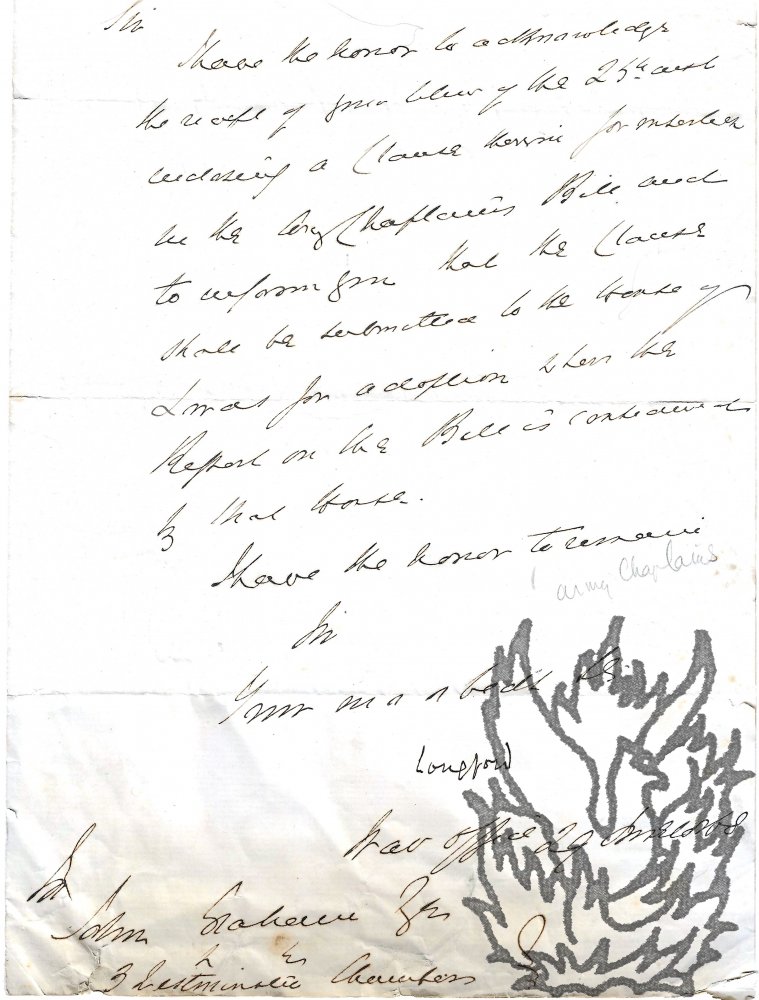 Sir
I have the honor to acknowledge
the receipt of your letter of the 25th inst
enclosing a Clause therein for insertion
in the Army Chaplains Bill and
to inform you that the Clause
shall be submitted to the House of
Lords for adoption when the
Report on the Bill is considered
by that House.
I have the honor to remain
army Chaplains
Sir
Your m o obedt
Longford
War Office 29 June
John Graham Esq
3 Westminster Chambers